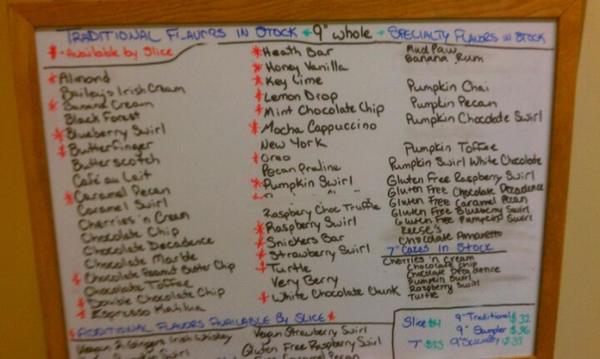 TRADITIONAL FLAVORS IN STOCK 9" whole SPECIALTY FLAVORS IN STOCK
* - Available by Slice
* Almond
Bailey's Irish Cream
* Banana Cream
Black Forest
* Blueberry Swirl
* Butterfinger
Butterscotch
Café au Lait
* Caramel Pecan
Caramel Swirl
Cherries 'n Cream
Chocolate Chip
Chocolate Decadence
Chocolate Marble
* Chocolate Peanut Butter Chip
Chocolate Toffee
* Double Chocolate Chip
* Espresso Kahlua
* Heath Bar
* Honey Vanilla
* Key Lime
* Lemon Drop
* Mint Chocolate Chip
* Mocha Cappuccino
New York
* Oreo
Pecan Praline
* Pumpkin Swirl
Raspberry Choc Truffle
* Raspberry Swirl
* Snickers Bar
* Strawberry Swirl
* Turtle
Very Berry
* White Chocolate Chunk
Mud Paw
Banana Rum
Pumpkin Chai
Pumpkin Pecan
Pumpkin Chocolate Swirl
Pumpkin Toffee
Pumpkin Swirl White Chocolate
Gluten Free Raspberry Swirl
Gluten Free Chocolate Decadence
Gluten Free Caramel Pecan
Gluten Free Blueberry Swirl
Gluten Free Pumpkin Swirl
Reese's
Chocolate Amaretto
7" CAKES IN STOCK
Cherries 'n cream
Chocolate Chip
Chocolate Decadence
Pumpkin Swirl
Raspberry Swirl
Turtle
* ADDITIONAL FLAVORS AVAILABLE BY SLICE *
Vegan 2 Gingers Irish Whiskey
Swirl
Vegan Strawberry Swirl
Gluten Free Raspberry Swirl
Caramel Pecan
Slice $4 9" Traditional $32
9" Sampler $36
7" 9" Specialty